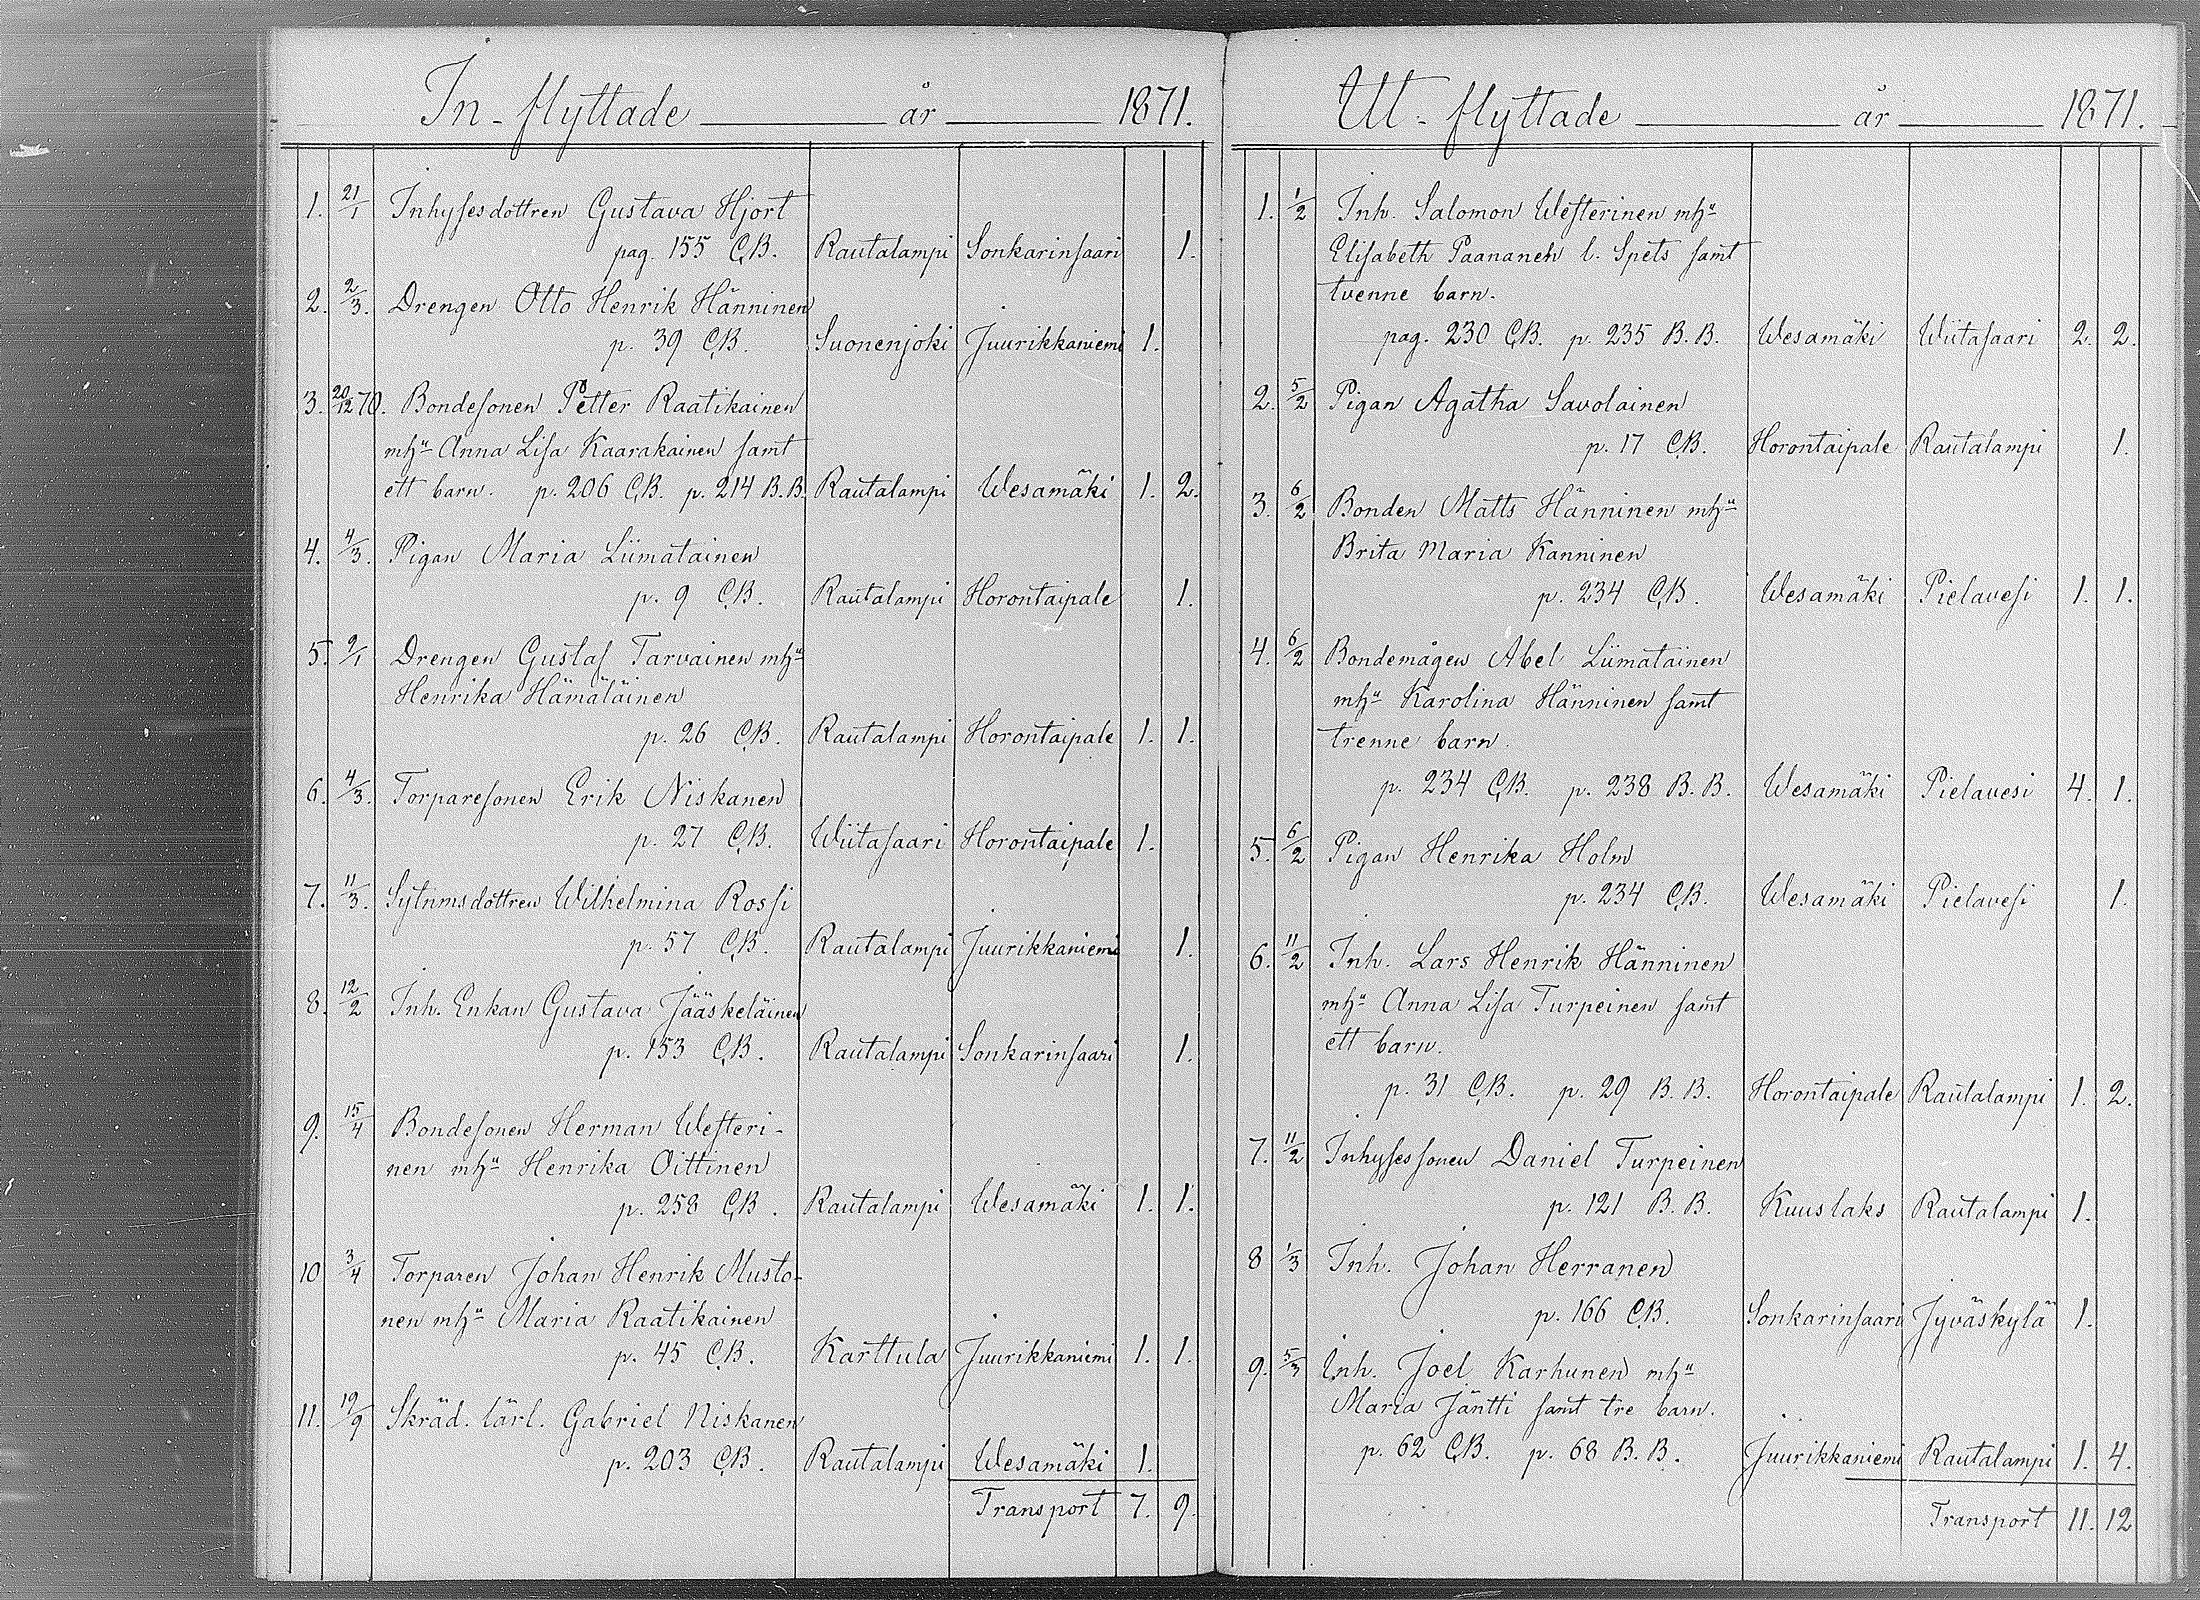 In-flyttade år 1871.
1. 21/1 Inhysesdottren Gustava Hjort
pag. 155 C.B. Rautalampi Sonkarinsaari 1.
2. 2/3. Drengen Otto Henrik Hänninen
p. 39 C.B. Suonenjoki Juurikkaniemi 1.
3. 20/12 70. Bondesonen Petter Raatikainen
mhu Anna Lisa Kaarakainen samt
ett barn. p. 206 C.B. p. 214 B.B. Rautalampi Wesamäki 1. 2.
4. 4/3. Pigan Maria Liimatainen
p. 9 C.B. Rautalampi Horontaipale 1.
5. 9/1 Drengen Gustaf Tarvainen mhu
Henrika Hämäläinen
p. 26 C.B. Rautalampi Horontaipale 1. 1.
6. 4/3. Torparesonen Erik Niskanen
p. 27 C.B. Wiitasaari Horontaipale 1.
7. 11/3. Sytnmsdottren Wilhelmina Rossi
p. 57 C.B. Rautalampi Juurikkaniemi 1.
8. 12/2 Inh. Enkan Gustava Jääskeläinen
p. 153 C.B. Rautalampi Sonkarinsaari 1.
9. 15/4 Bondesonen Herman Westeri-
nen mhu Henrika Oittinen
p. 258 C.B. Rautalampi Wesamäki 1. 1.
10 3/4 Torparen Johan Henrik Musto-
nen mhu Maria Raatikainen
p. 45 C.B. Karttula Juurikkaniemi 1. 1.
11. 19/9 Skräd. lärl. Gabriel Niskanen
p. 203 C.B. Rautalampi Wesamäki 1.
Transport 7. 9.
Ut-flyttade år 1871.
1. 1/2 Inh. Salomon Westerinen mhu
Elisabeth Paananen l. Spets samt
tvenne barn.
pag. 230 C.B. p. 235 B.B. Wesamäki Wiitasaari 2. 2.
2. 5/2 Pigan Agatha Savolainen
p. 17 C.B. Horontaipale Rautalampi 1.
3. 6/2 Bonden Matts Hänninen mhu
Brita Maria Kanninen
p. 234 C.B. Wesamäki Pielavesi 1. 1.
4. 6/2 Bondemågen Abel Liimatainen
mhu Karolina Hänninen samt
trenne barn.
p. 234 C.B. p. 238 B.B. Wesamäki Pielavesi 4. 1.
5. 6/2 Pigan Henrika Holm
p. 234 C.B. Wesamäki Pielavesi 1.
6. 11/2 Inh. Lars Henrik Hänninen
mhu Anna Lisa Turpeinen samt
ett barn.
p. 31 C.B. p. 29 B.B. Horontaipale Rautalampi 1. 2.
7. 11/2 Inhysessonen Daniel Turpeinen
p. 121 B.B. Kuuslaks Rautalampi 1.
8 1/3 Inh. Johan Herranen
p. 166 C.B. Sonkarinsaari Jyväskylä 1.
9. 5/3 Inh. Joel Karhunen mhu
Maria Jäntti samt tre barn.
p. 62 C.B. p. 68 B.B. Juurikkaniemi Rautalampi 1. 4.
Transport 11. 12